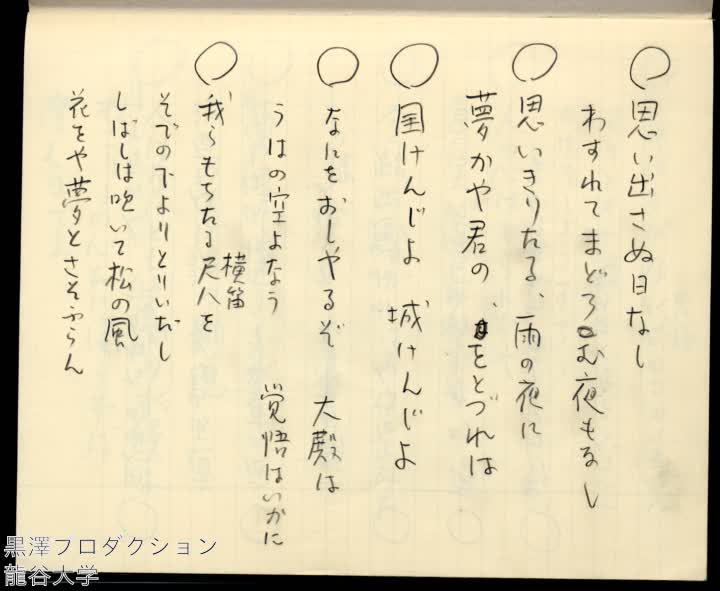 ○思い出さぬ日なし
わすれてまどろむ夜もなし
○思いきりたる、雨の夜に
夢かや君の、をとづれは
○国けんじよ 城けんじよ
○なにをおしやるぞ 大殿は
うはの空よなう 覚悟はいかに
○我らもちたる尺八を
横笛
そでの下よりとりいだし
しばしは吹いて松の風
花をや夢とさそふらん
黒澤プロダクション
龍谷大学